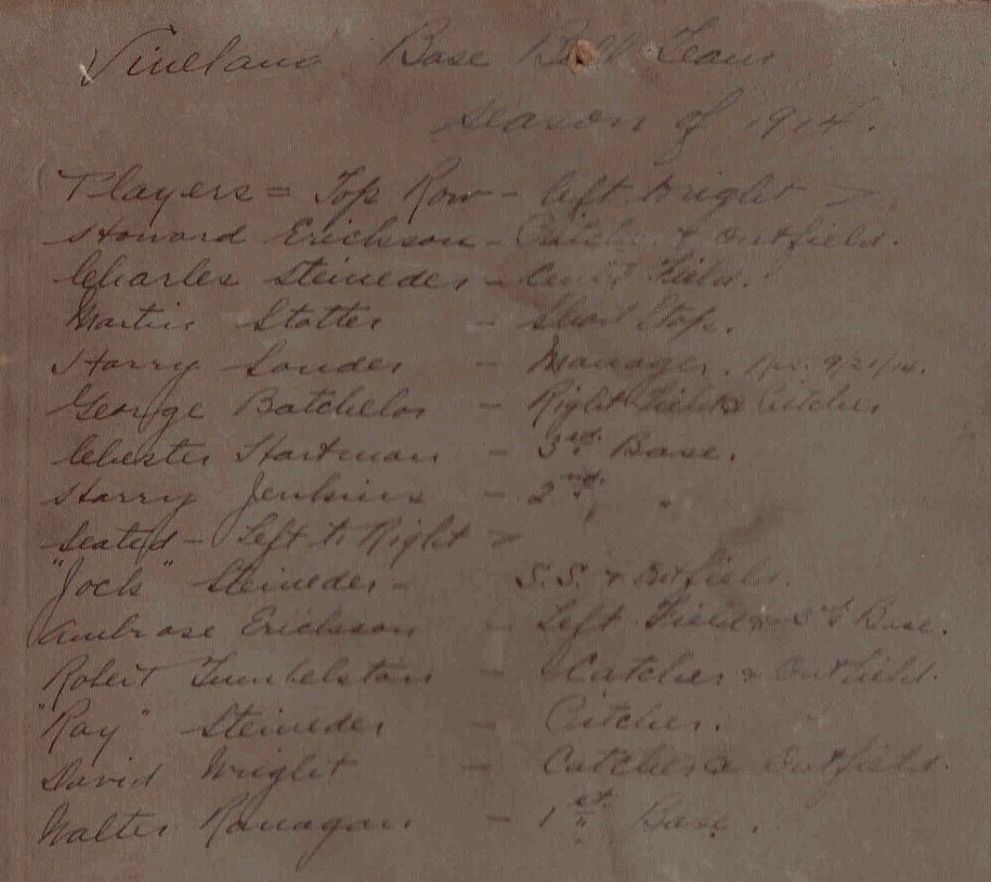 Vineland Base Ball Team
Season of 1914.
Players = Top Row - left to right >
Howard Erickson - Pitcher & Outfield.
Charles Steineder - Center Field.
Martin Stotter - Short Stop.
Harry Souder - Manager. 9/21/14.
George Batchelor - Right Field & Pitcher
Chester Hartman - 3rd. Base.
Harry Jenkins - 2nd. "
Seated - Left to Right >
"Jock" Steineder - S.S. & Outfield.
Ambrose Erickson - Left Field & Base.
Robert Tumbelston - Catcher & Outfield.
"Ray" Steineder - Pitcher.
David Wright - Catcher & Outfield.
Walter Ranagan - 1st. Base.